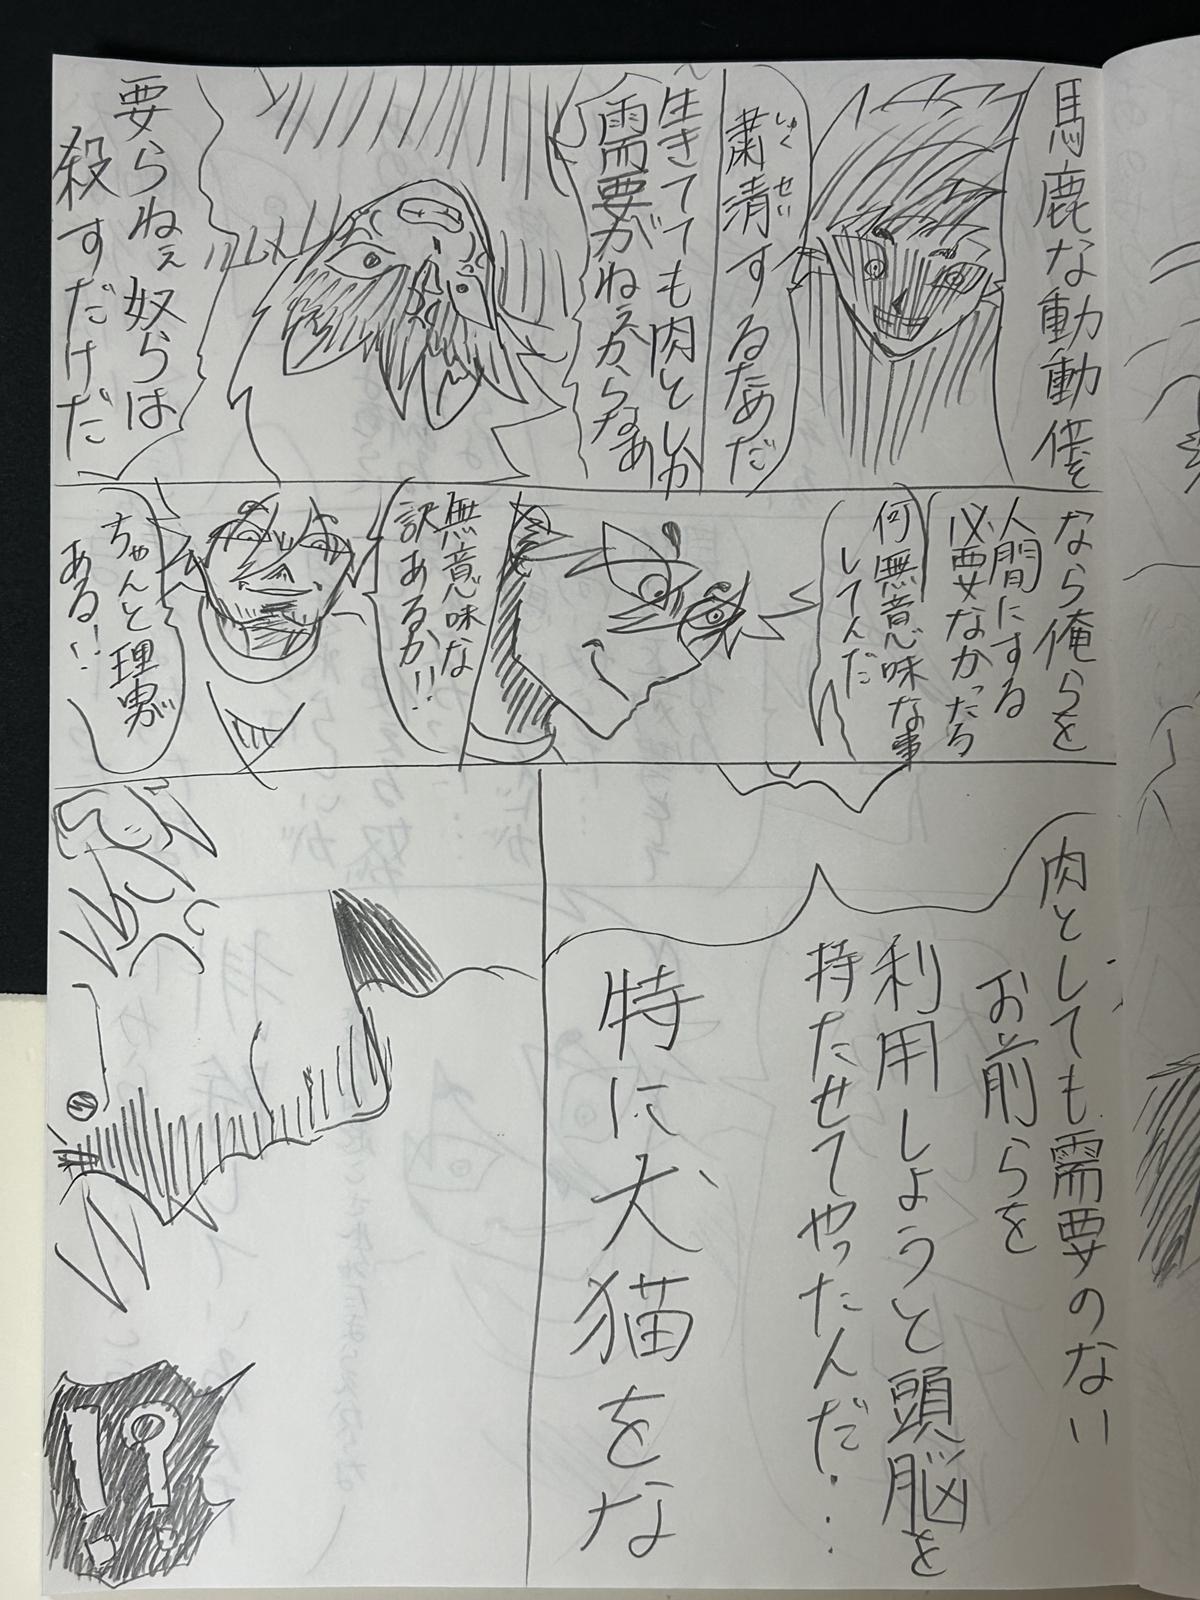 馬鹿な動動偟を
粛清するためだ
しゅくせい
生きてても肉としか
需要がねえからなあ
要らねぇ奴らは
殺すだけだ
なら俺らを
人間にする
必要なかったろ
何無意味な事
してんだ
無意味な
訳あるか!!
ちゃんと理由が
ある!!
肉としても需要のない
お前らを
利用しようと頭脳を
持たせてやったんだ…
特に犬猫をな
!?